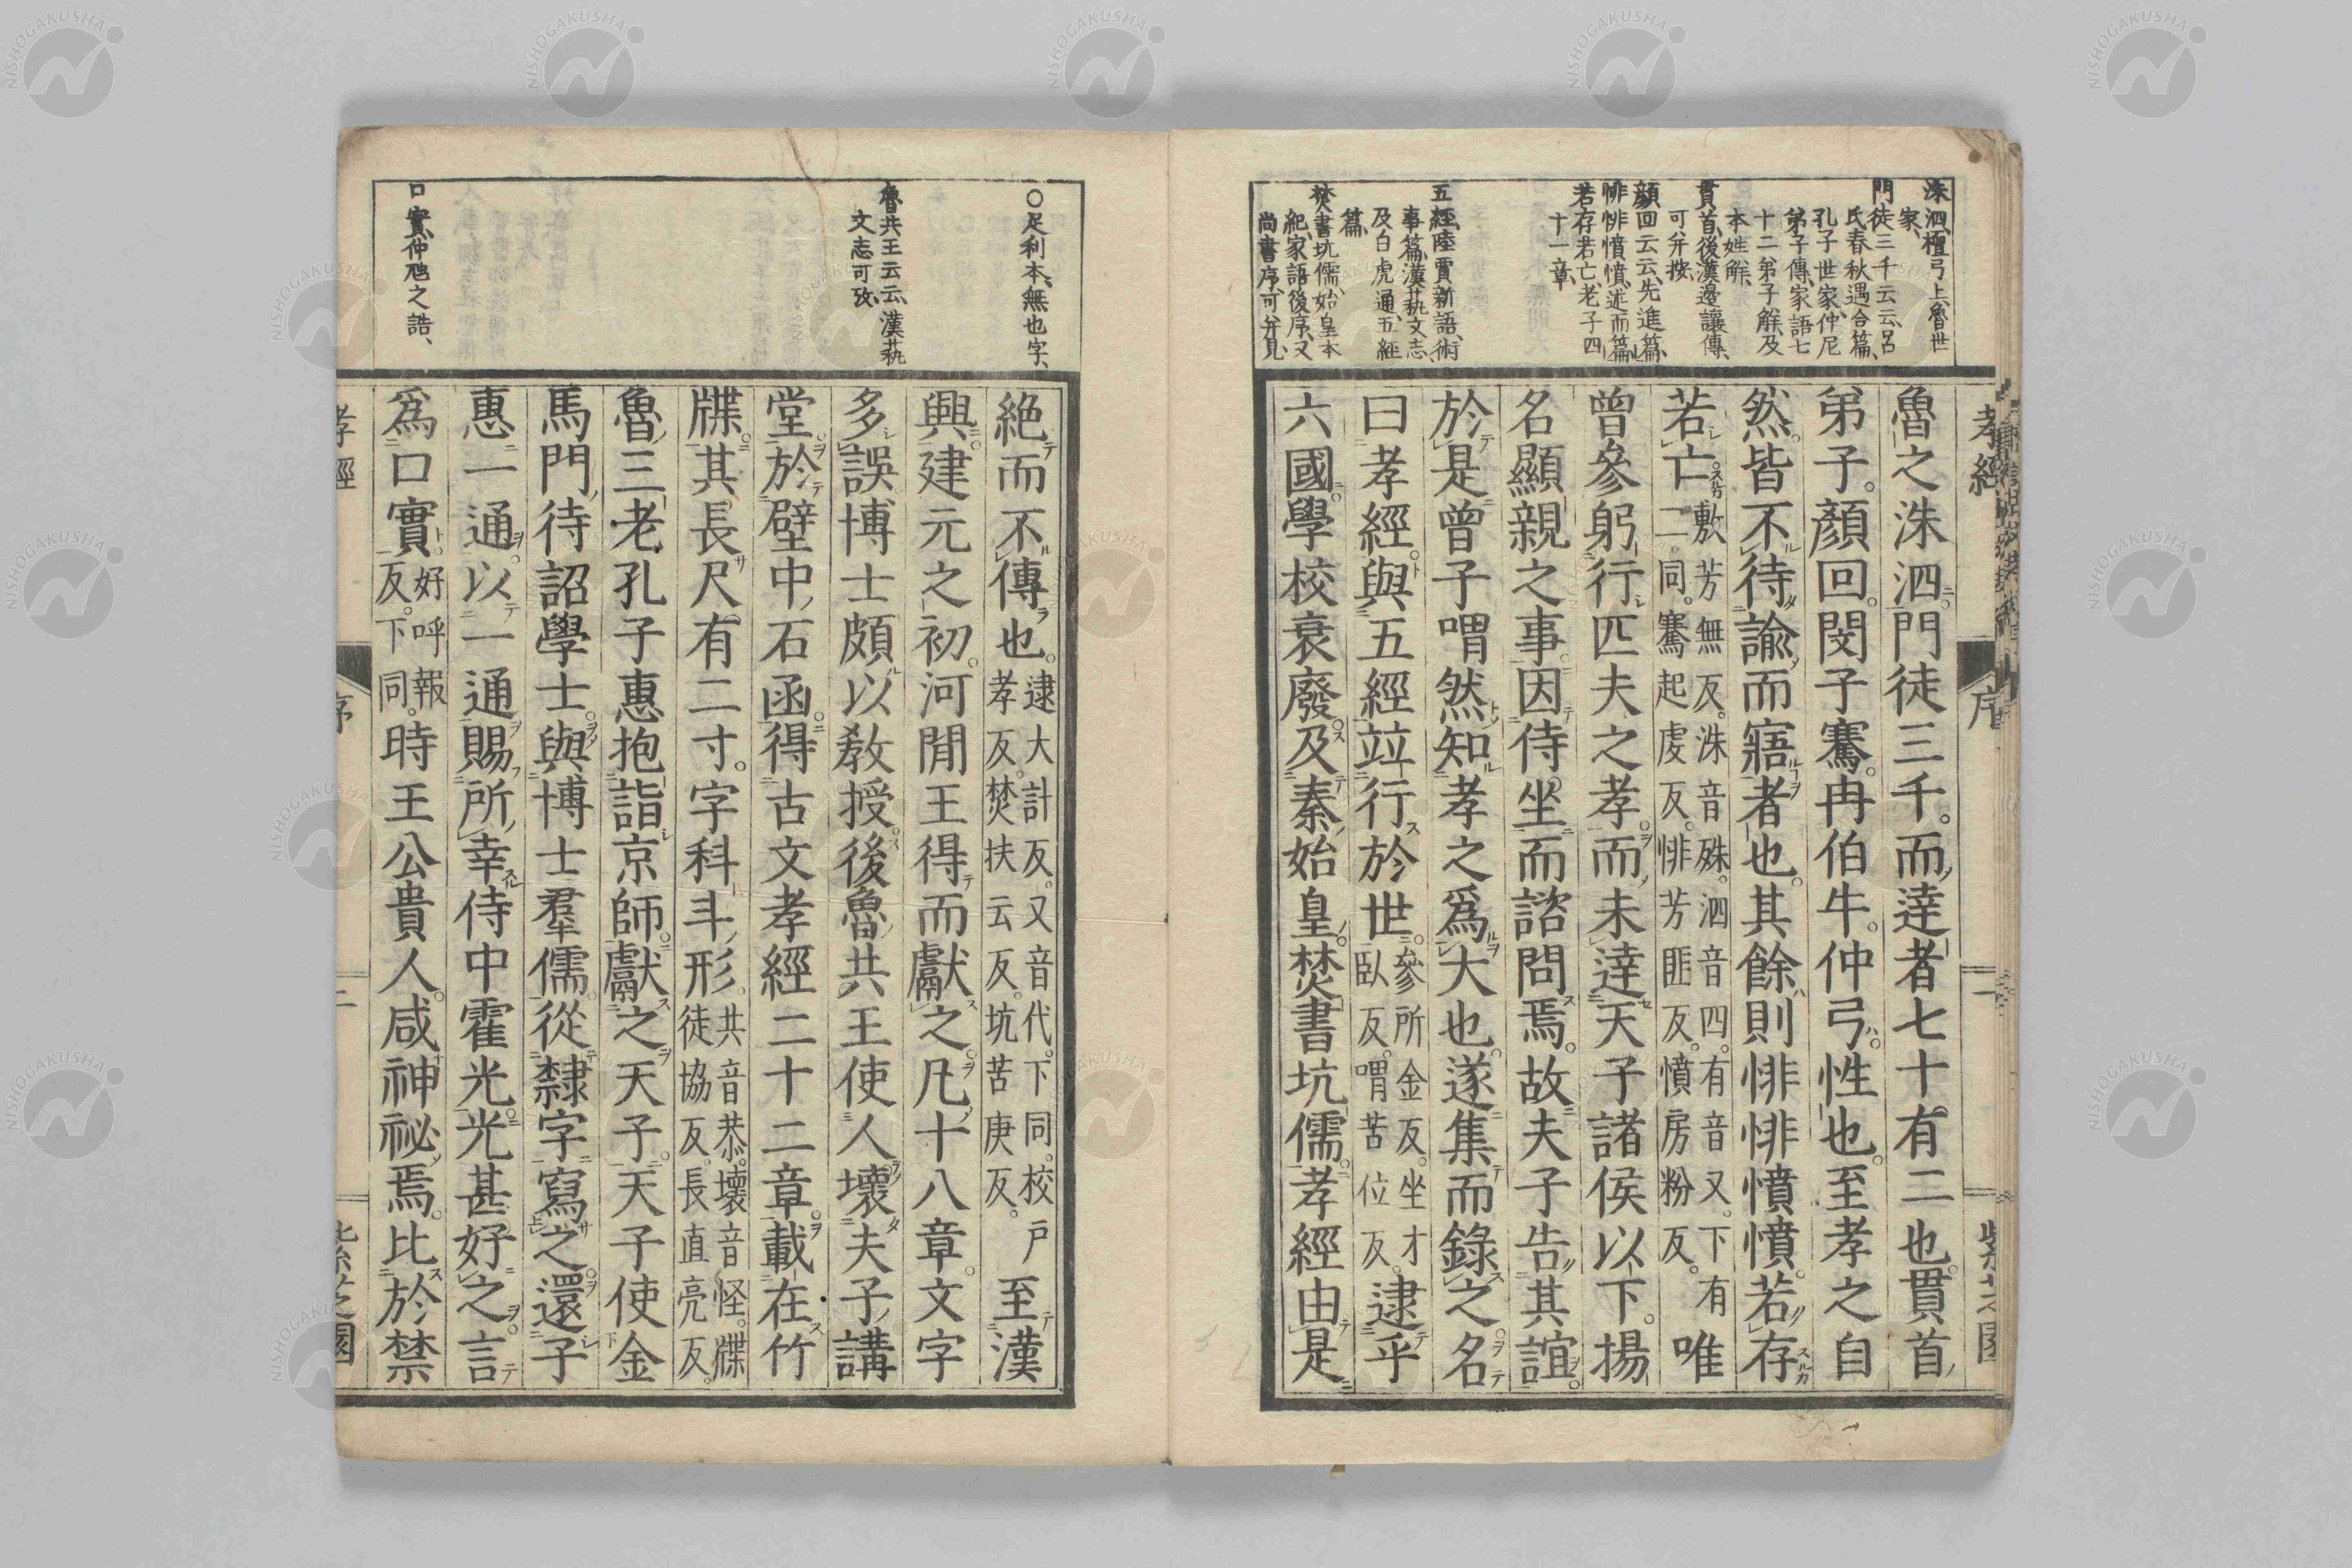 洙泗、檀弓上、魯世
家、
門徒三千云云、呂
氏春秋遇合篇、
孔子世家、仲尼
弟子傳、家語七
十二弟子解、及
本姓解、
貫首、後漢邊讓傳、
可幷按、
顏回云云、先進篇、
悱悱憤憤、述而篇、
若存若亡、老子四
十一章、
五經、陸賈新語、術
事篇、漢藝文志、
及白虎通、五經
篇、
焚書坑儒、始皇本
紀、家語後序、又
尚書序、可幷見、
孝經
序
二
紫芝園
魯之洙泗。門徒三千。而達者七十有二也。貫首
弟子。顏回。閔子騫。冉伯牛。仲弓。性也。至孝之自
然。皆不待諭而寤者也。其餘則悱悱憤憤。若存
若亡。敷芳無反。洙音殊。泗音四。有音又。下有
二同。騫起虔反。悱芳匪反。憤房粉反。唯
曾參躬行匹夫之孝。而未達天子諸侯以下。揚
名顯親之事。因侍坐而諮問焉。故夫子告其誼。
於是曾子喟然知孝之爲大也。遂集而錄之。名
曰孝經。與五經竝行於世。參所金反。坐才
臥反。喟苦位反。逮乎
六國。學校衰廢。及秦始皇。焚書坑儒。孝經由是
○足利本、無也字、
魯共王云云、漢藝
文志可攷、
口實、仲虺之誥、
絕而不傳也。逮大計反。又音代。下同。校戶
孝反。焚扶云反。坑苦庚反。至漢
興。建元之初。河閒王得而獻之。凡十八章。文字
多誤。博士頗以敎授。後魯共王使人壞夫子講
堂。於壁中石函。得古文孝經二十二章。載在竹
牒。其長尺有二寸。字科斗形。共音恭。壞音怪。牒
徒協反。長直亮反。
魯三老孔子惠抱詣京師。獻之天子。天子使金
馬門待詔學士。與博士羣儒。從隸字寫之。還子
惠一通。以一通賜所幸侍中霍光。光甚好之。言
爲口實。好呼報
反。下同。時王公貴人。咸神祕焉。比於禁
孝經
序
二
紫芝園